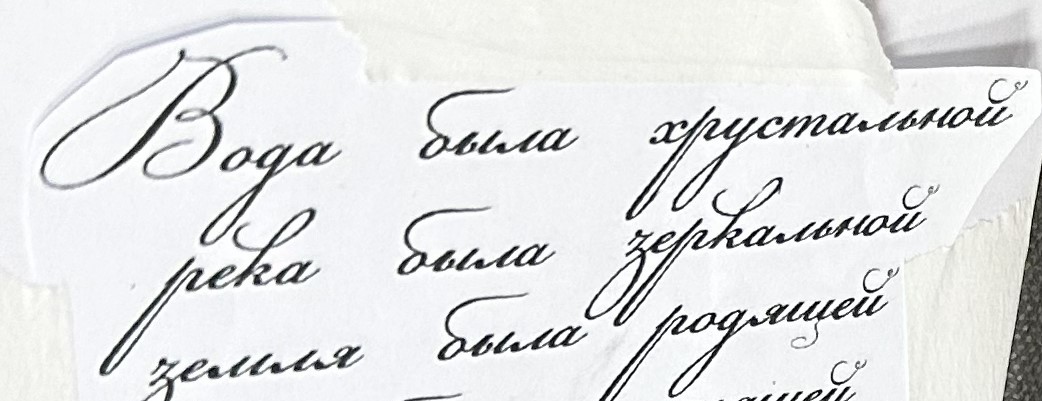 Вода была хрустальной
река была зеркальной
земля была родящей